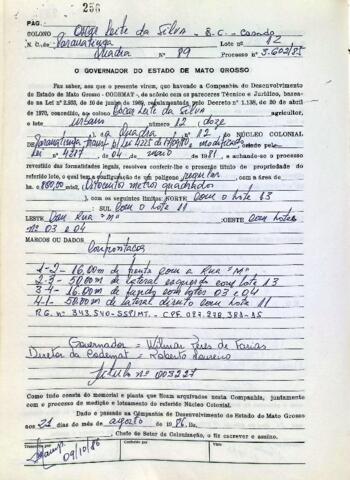 256
PAG.
COLONO Oscar Leite da Silva - B.C. - Casado
N. C. de Paranatinga Lote nº 12
Quadra Nº 89 Processo nº 3.602/85
O GOVERNADOR DO ESTADO DE MATO GROSSO
Faz saber, aos que o presente virem, que havendo a Companhia de Desenvolvimento
de Estado de Mato Grosso - CODEMAT -, de acordo com os pareceres Técnico e Jurídico, basea-
na Lei nº 2.933, de 10 de junho de 1969, regulamentada pelo Decreto nº 1.138, de 20 de abril
de 1970, concedido, ao colono Oscar Leite da Silva agricultor,
o lote urbano número 12 doze
nº 12 do NÚCLEO COLONIAL
de Paranatinga, Lei 4225 e modificada
Lei nº 4317 de 04 de maio de 1981, e achando-se o processo
revestido das formalidades legais, resolveu conferir-lhe o presente título de propriedade do
referido lote, o qual tem a configuração de um polígono regular com a área de
ha. 800,00 mts2 (Oitocentos metros quadrados
), com os seguintes limites: NORTE Com o lote 13
SUL Com o lote 11
LESTE Com Rua "M" OESTE Com lotes
nºs 03 e 04
MARCOS OU DADOS
Confrontações
1-2- 16.00m de frente com a Rua "M"
2-3- 50.00m de lateral esquerdo com lote 13
3-4- 16.00m de fundo com lotes 03 e 04
4-1- 50.00m de lateral direito com lote 11
R.G. nº 343.540-SSP/MT. - C.P.F.
Governador = Wilmar Peres de Farias
Diretor da Codemat = Roberto Loureiro
Título nº 003227
Como tudo consta do memorial e planta que ficam arquivados nesta Companhia, juntamente
com o processo de medição e loteamento do referido Núcleo Colonial.
Dado e passado na Companhia de Desenvolvimento de Estado de Mato Grosso
aos 21 dias do mês de agosto de 1986. Eu,
, Chefe de Setor de Colonização, o fiz escrever e assino.
Transcrito por
Conferido por
Visto
09/10/86